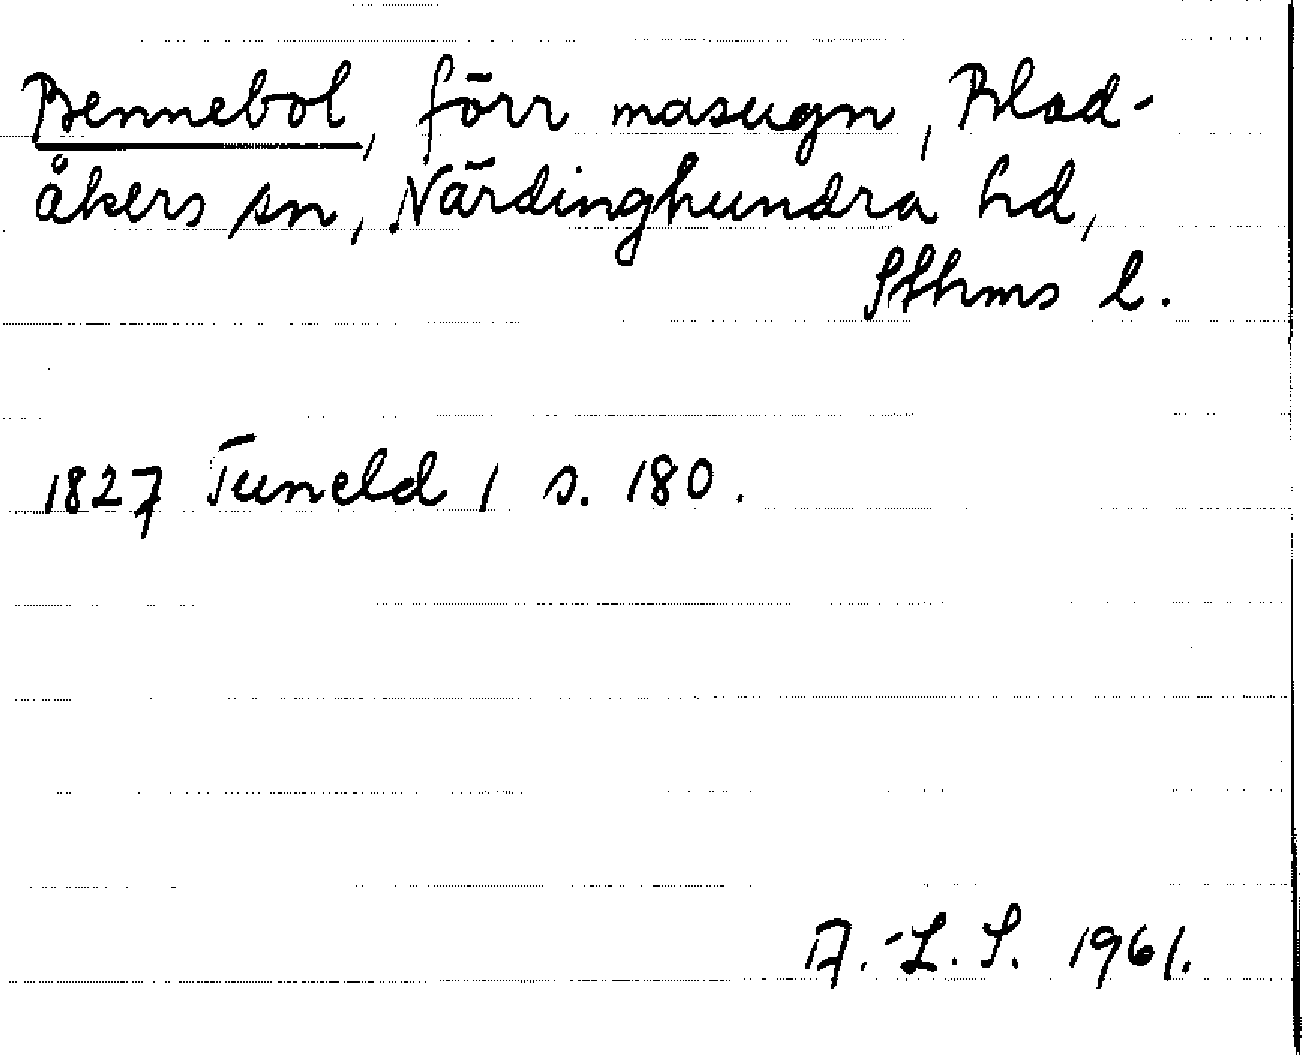 Bennebol, förr masugn, Blad-
åkers sn, Närdinghundra hd,
Sthms l.
1827 Tuneld 1 s. 180.
A.-L. S. 1961.